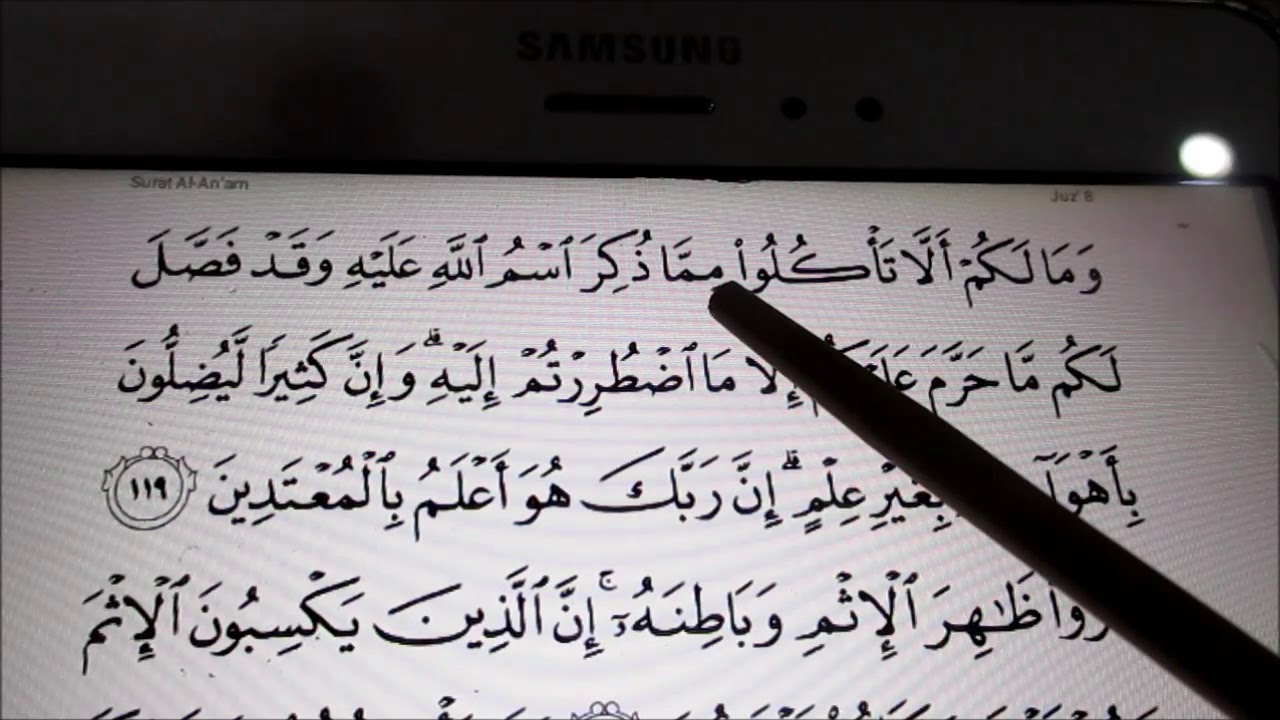 SAMSUNG
Surat Al-An'am Juz' 8
وَمَا لَكُمْ أَلَّا تَأْكُلُوا۟ مِمَّا ذُكِرَ ٱسْمُ ٱللَّهِ عَلَيْهِ وَقَدْ فَصَّلَ
لَكُم مَّا حَرَّمَ عَلَيْكُمْ إِلَّا مَا ٱضْطُرِرْتُمْ إِلَيْهِ ۗ وَإِنَّ كَثِيرًا لَّيُضِلُّونَ
بِغَيْرِ عِلْمٍ ۗ إِنَّ رَبَّكَ هُوَ أَعْلَمُ بِٱلْمُعْتَدِينَ ١١٩
ظَـٰهِرَ ٱلْإِثْمِ وَبَاطِنَهُۥٓ ۚ إِنَّ ٱلَّذِينَ يَكْسِبُونَ ٱلْإِثْمَ